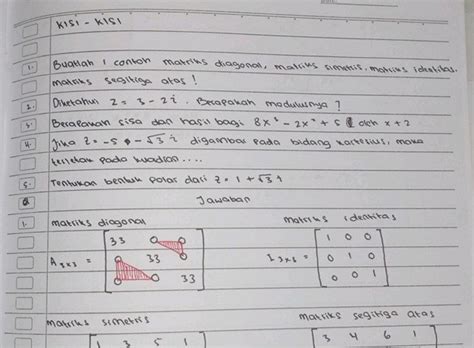 KISI - KISI
1. Buatlah 1 contoh matriks diagonal, matriks simetris, matriks identitas,
matriks segitiga atas !
2. Diketahui z = 3 - 2i. Berapakah modulusnya ?
3. Berapakah sisa dan hasil bagi 8x³ - 2x² + 5 oleh x + 2
4. Jika z = -5 - √3 i digambar pada bidang kartesius, maka
terletak pada kuadran ....
5. Tentukan bentuk polar dari z = 1 + √3 i
Jawaban
1. matriks diagonal
matriks identitas
33 0 0
1 0 0
A3x3 = 0 33 0
I3x3 = 0 1 0
0 0 33
0 0 1
matriks simetris
matriks segitiga atas
1 3 5 1
3 4 6 1